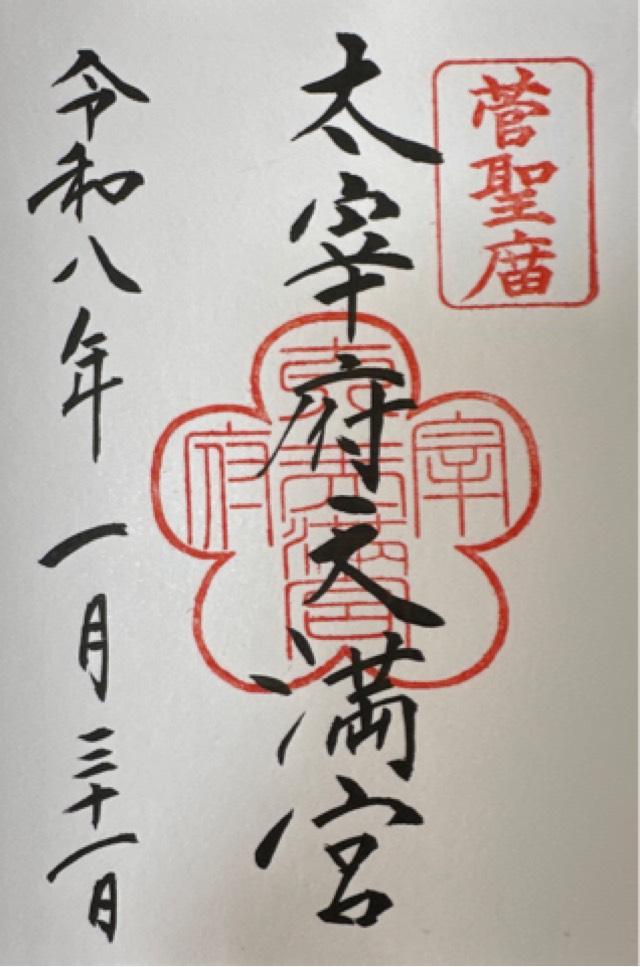 菅聖庿
太宰府天満宮
令和八年 一月三十一日